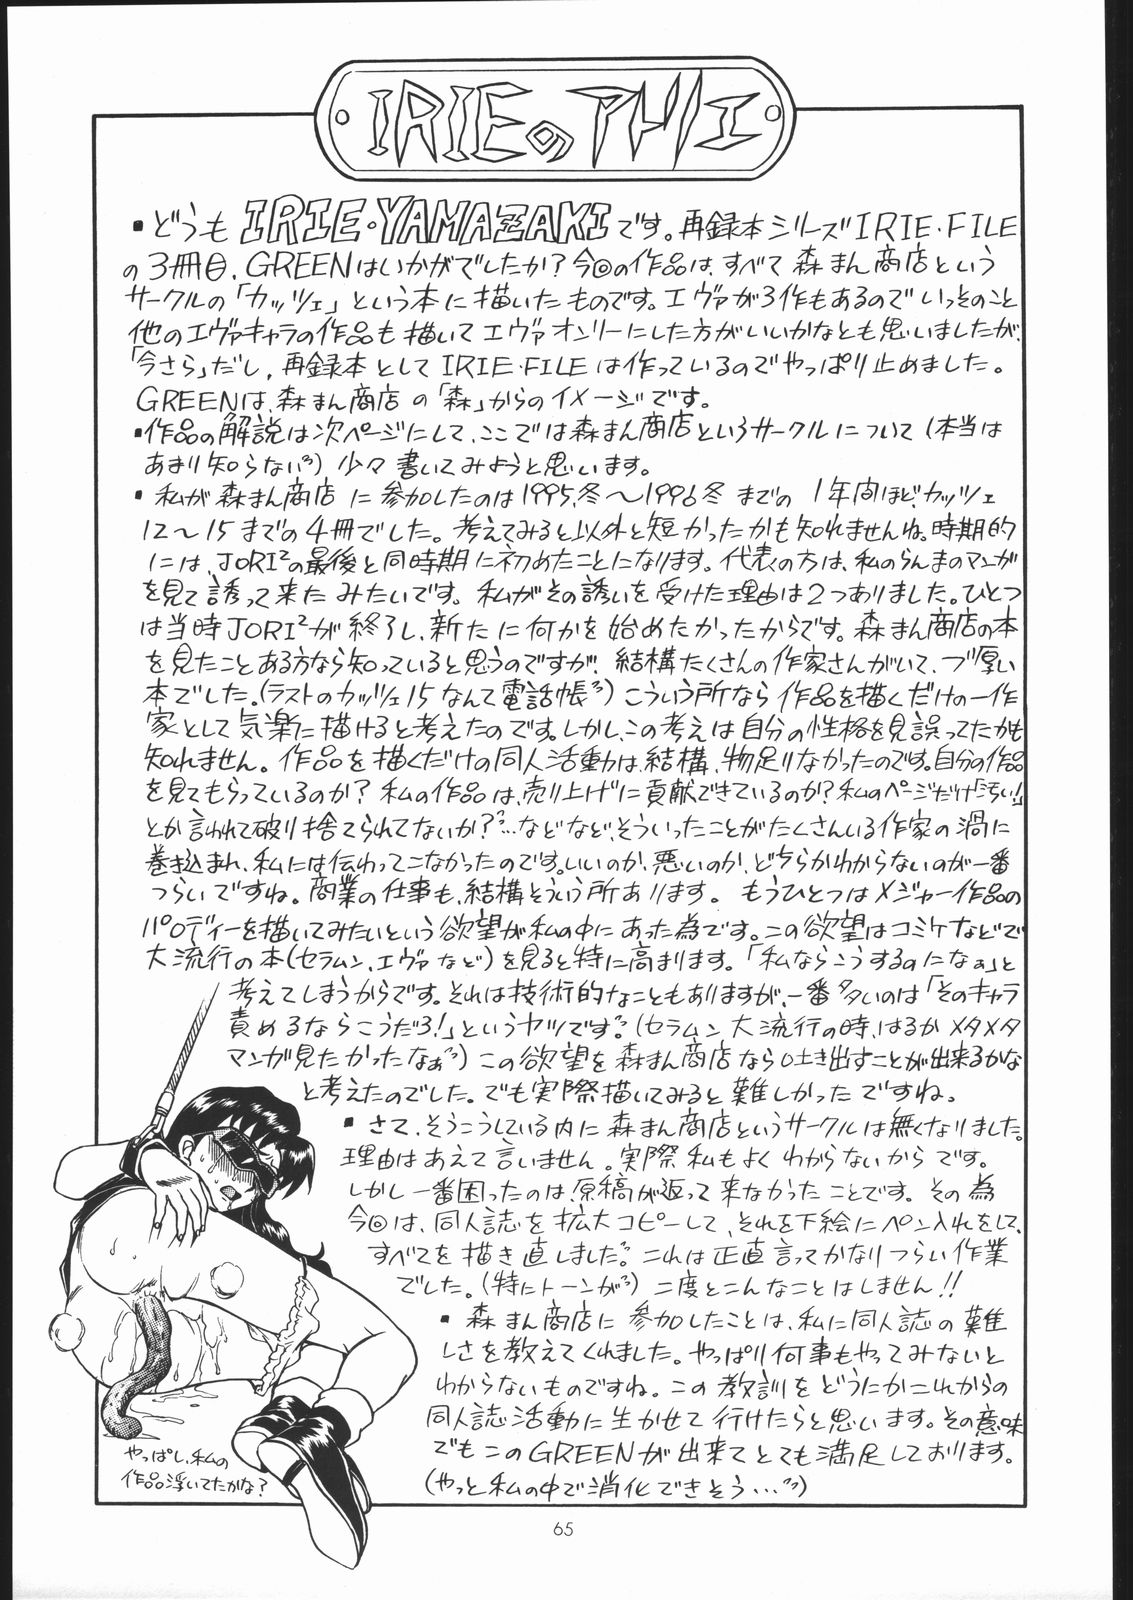 IRIEのアトリエ
▪どうもIRIE・YAMAZAKIです。再録本シリーズIRIE・FILE
の3冊目、GREENはいかがでしたか?今回の作品は、すべて森まん商店という
サークルの「カッツェ」という本に描いたものです。エヴァが3作もあるのでいっそのこと
他のエヴァキャラの作品も描いてエヴァオンリーにした方がいいかなとも思いましたが、
「今さら」だし、再録本としてIRIE・FILEは作っているのでやっぱり止めました。
GREENは、森まん商店の「森」からのイメージです。
▪作品の解説は次ページにして、ここでは森まん商店というサークルについて(本当は
あまり知らない)少々書いてみようと思います。
▪私が森まん商店に参加したのは1995,冬〜1996冬までの1年間ほど、カッツェ
12〜15までの4冊でした。考えてみると以外と短かったかも知れませんね。時期的
には、JORI²の最後と同時期に初めたことになります。代表の方は、私のらんまのマンガ
を見て誘って来たみたいです。私がその誘いを受けた理由は2つありました。ひとつ
は当時JORI²が終了し、新たに何かを始めたかったからです。森まん商店の本
を見たことある方なら知っていると思うのですが、結構たくさんの作家さんがいて、ブ厚い
本でした。(ラストのカッツェ15なんて電話帳)こういう所なら作品を描くだけの一作
家として気楽に描けると考えたのです。しかし、この考えは自分の性格を見誤ってたかも
知れません。作品を描くだけの同人活動は、結構、物足りなかったのです。自分の作品
を見てもらっているのか?私の作品は、売り上げに貢献できているのか?私のページだけ「汚い!」
とか言われて破り捨てられてないか?…などなど、そういったことがたくさんいる作家の渦に
巻き込まれ、私には伝わってこなかったのです。いいのか、悪いのか、どちらかわからないのが一番
つらいですね。商業の仕事も、結構そういう所あります。もうひとつはメジャー作品の
パロディーを描いてみたいという欲望が私の中にあった為です。この欲望はコミケなどで
大流行の本(セラムン、エヴァなど)を見ると特に高まります。「私ならこうするのになぁ」と
考えてしまうからです。それは技術的なこともありますが、一番多いのは「そのキャラ
責めるならこうだろ!」というヤツです。(セラムン大流行の時、はるかメタメタ
マンガ見たかったなぁ)この欲望を森まん商店なら吐き出すことが出来るかな
と考えたのでした。でも実際描いてみると難しかったですね。
▪さて、そうこうしている内に森まん商店というサークルは無くなりました。
理由はあえて言いません。実際私もよくわからないからです。
しかし一番困ったのは、原稿が返って来なかったことです。その為
今回は、同人誌を拡大コピーして、それを下絵にペン入れをして、
すべてを描き直しました。これは正直言ってかなりつらい作業
でした。(特にトーンが)二度とこんなことはしません!!
▪森まん商店に参加したことは、私に同人誌の難
しさを教えてくれました。やっぱり何事もやってみないと
わからないものですね。この教訓をどうにかこれからの
同人誌活動に生かせて行けたらと思います。その意味
でもこのGREENが出来てとても満足しております。
(やっと私の中で消化できそう…)
やっぱし、私の
作品浮いてたかな?
65